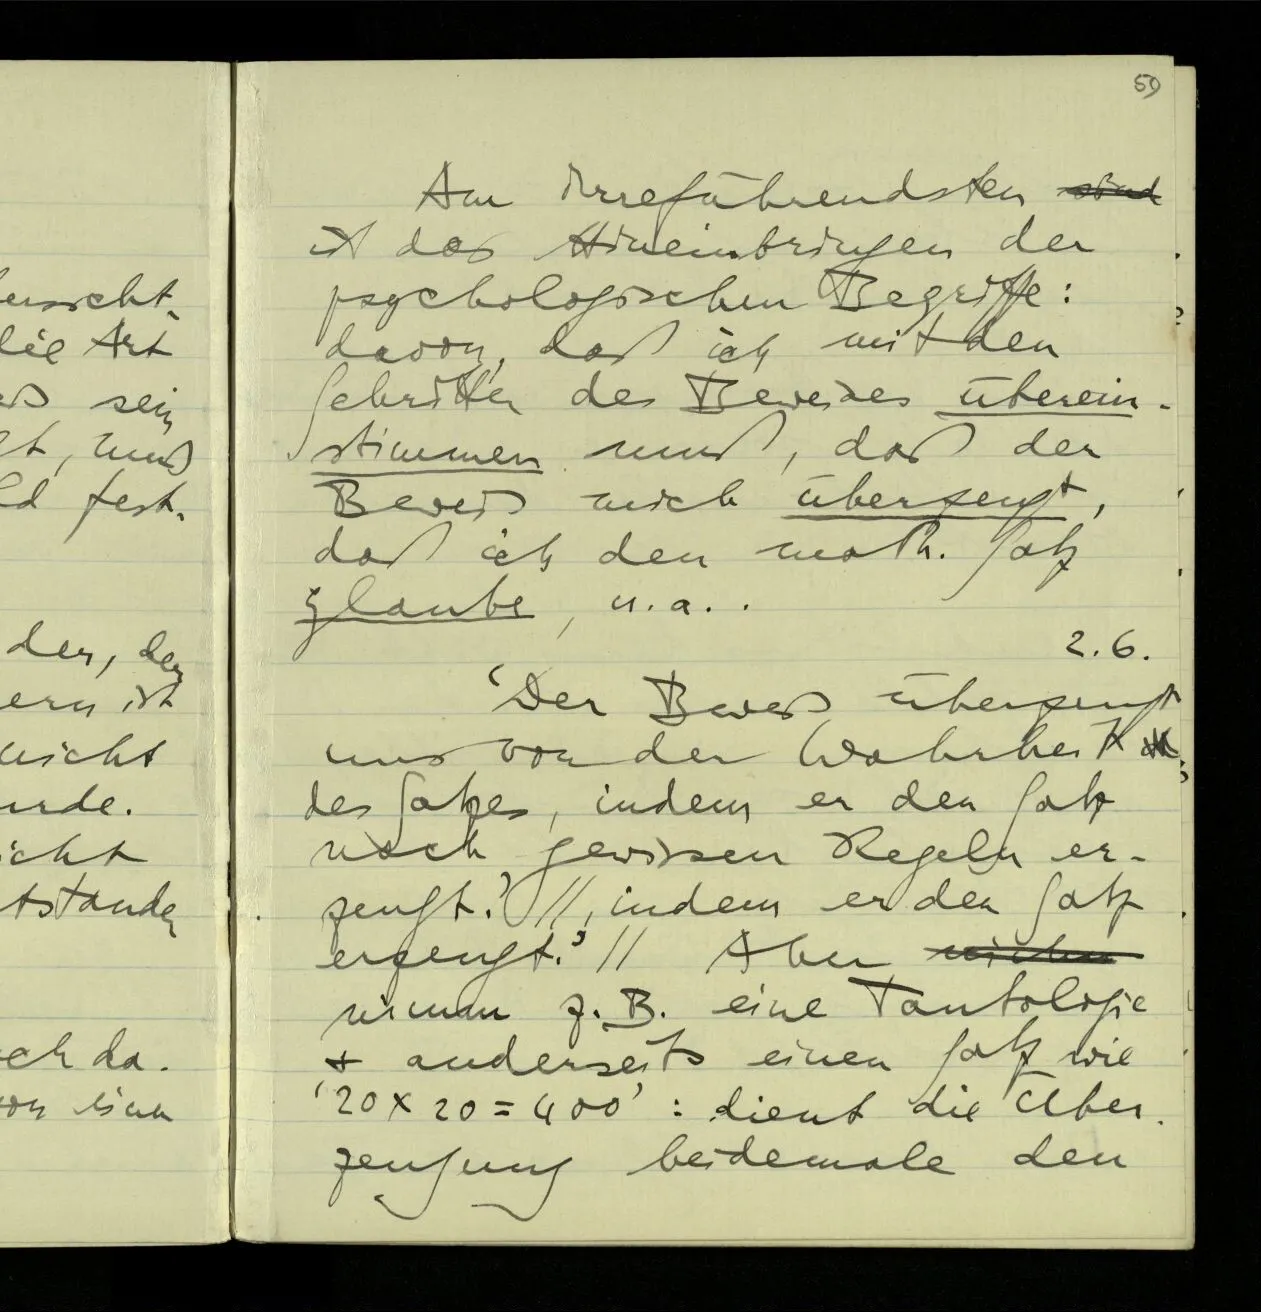 ersicht-
die Art
sein
t, muß
ld fest.
der, der
ern ist
nicht
urde.
icht
tstanden
ch da.
von einer
59
Am irreführendsten sind
ist das Hineinbringen der
psychologischen Begriffe:
davon, daß ich mit den
Schritten des Beweises überein-
stimmen muß, daß der
Beweis mich überzeugt,
daß ich den math. Satz
glaube, u.a..
2.6.
'Der Beweis überzeugt
uns von der Wahrheit
des Satzes, indem er den Satz
nach gewissen Regeln er-
zeugt.' //, indem er den Satz
erzeugt.' // Aber
nimm z.B. eine Tautologie
& anderseits einen Satz wie
'20 x 20 = 400': dient die Über-
zeugung beidemale den